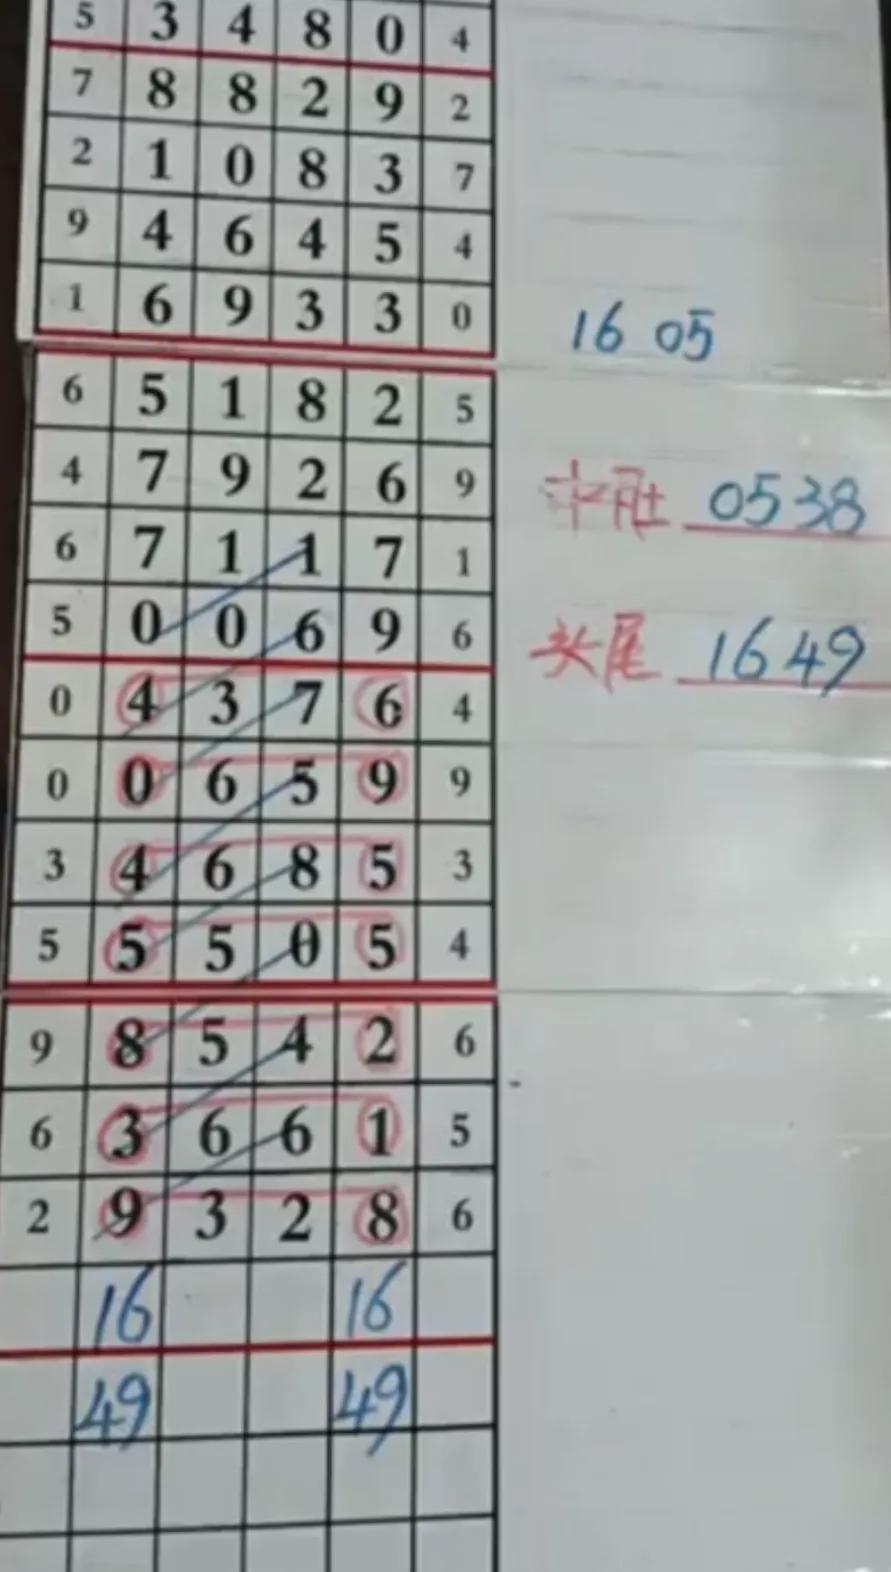 5 3 4 8 0 4
7 8 8 2 9 2
2 1 0 8 3 7
9 4 6 4 5 4
1 6 9 3 3 0
16 05
6 5 1 8 2 5
4 7 9 2 6 9
中肚 0538
6 7 1 1 7 1
5 0 0 6 9 6
头尾 1649
0 4 3 7 6 4
0 0 6 5 9 9
3 4 6 8 5 3
5 5 5 0 5 4
9 8 5 4 2 6
6 3 6 6 1 5
2 9 3 2 8 6
16 16
49 49